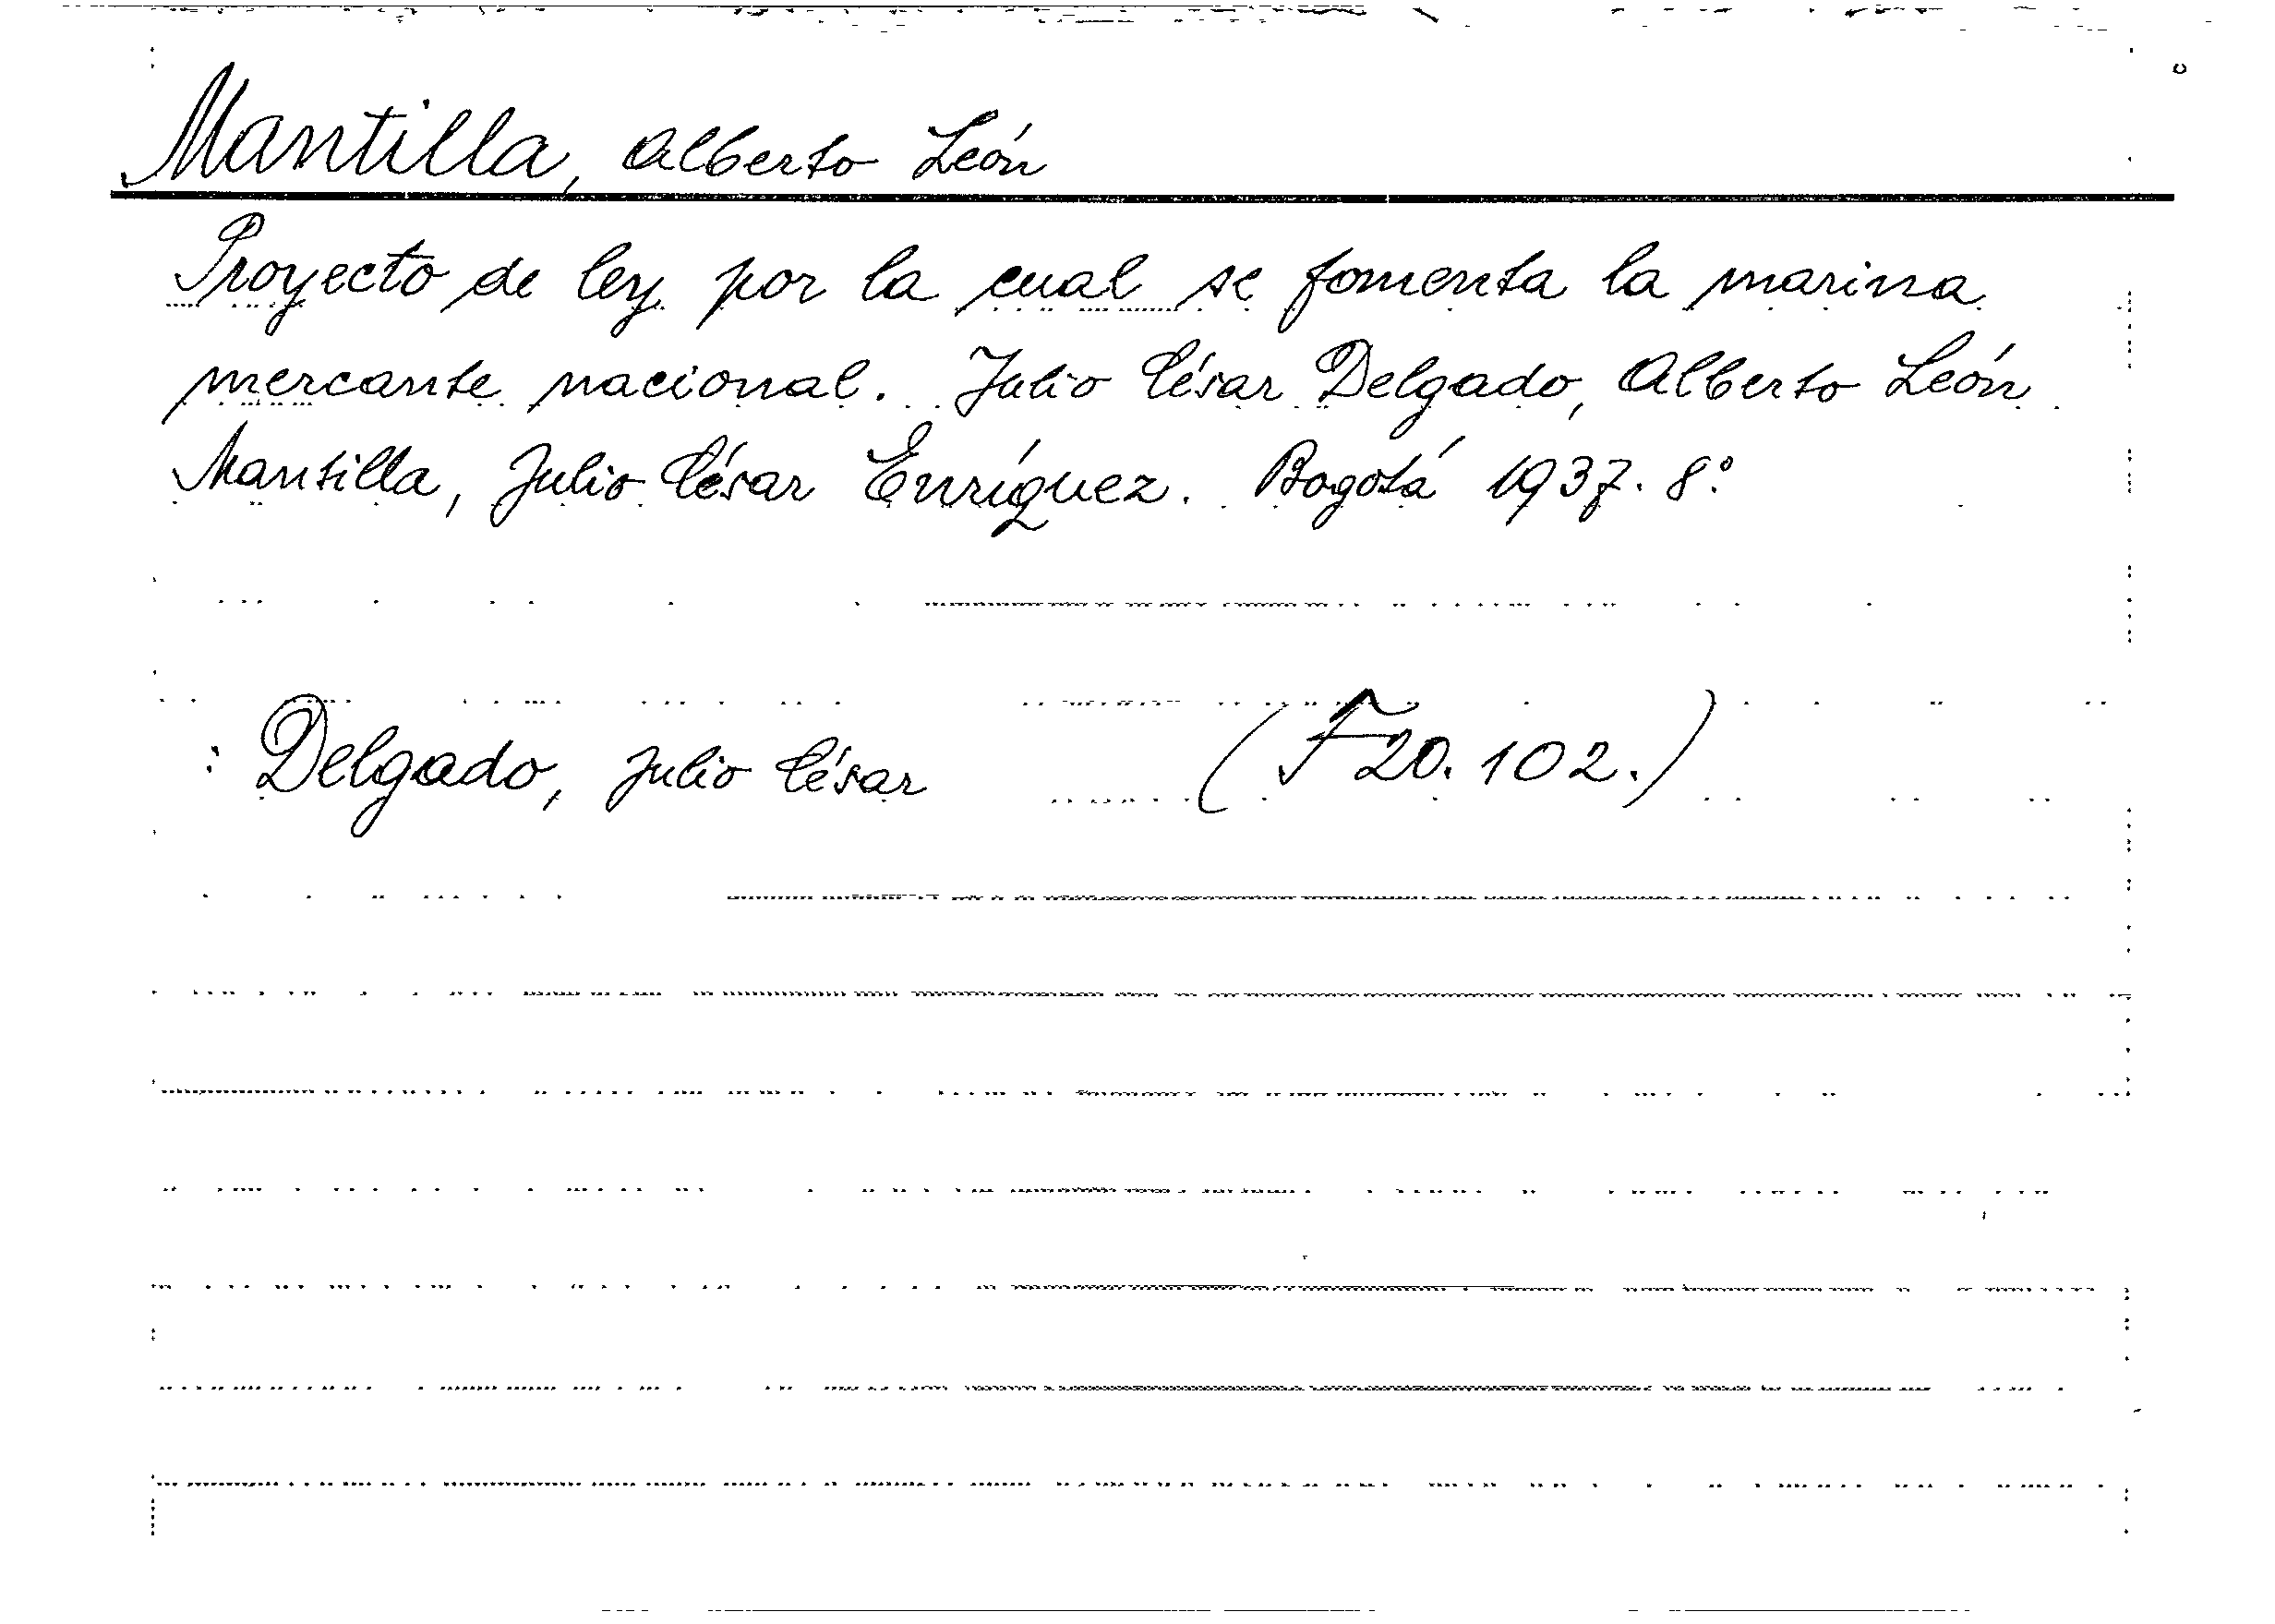 Mantilla, Alberto León
Proyecto de ley por la cual se fomenta la marina
mercante nacional. Julio César Delgado, Alberto León
Mantilla, Julio César Enríquez. Bogotá 1937. 8°
: Delgado, Julio César (F 20.102.)